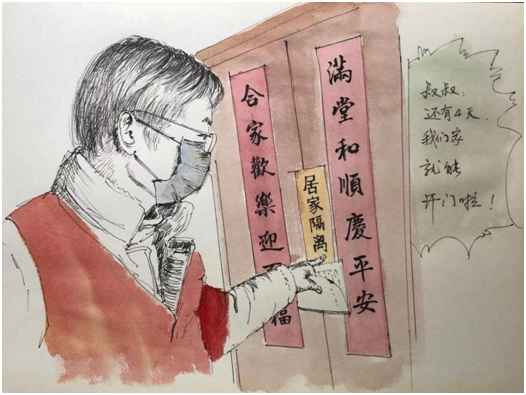 滿堂和順慶平安
合家歡樂迎福
居家隔离
叔叔：
还有4天，
我们家
就能
开门啦！